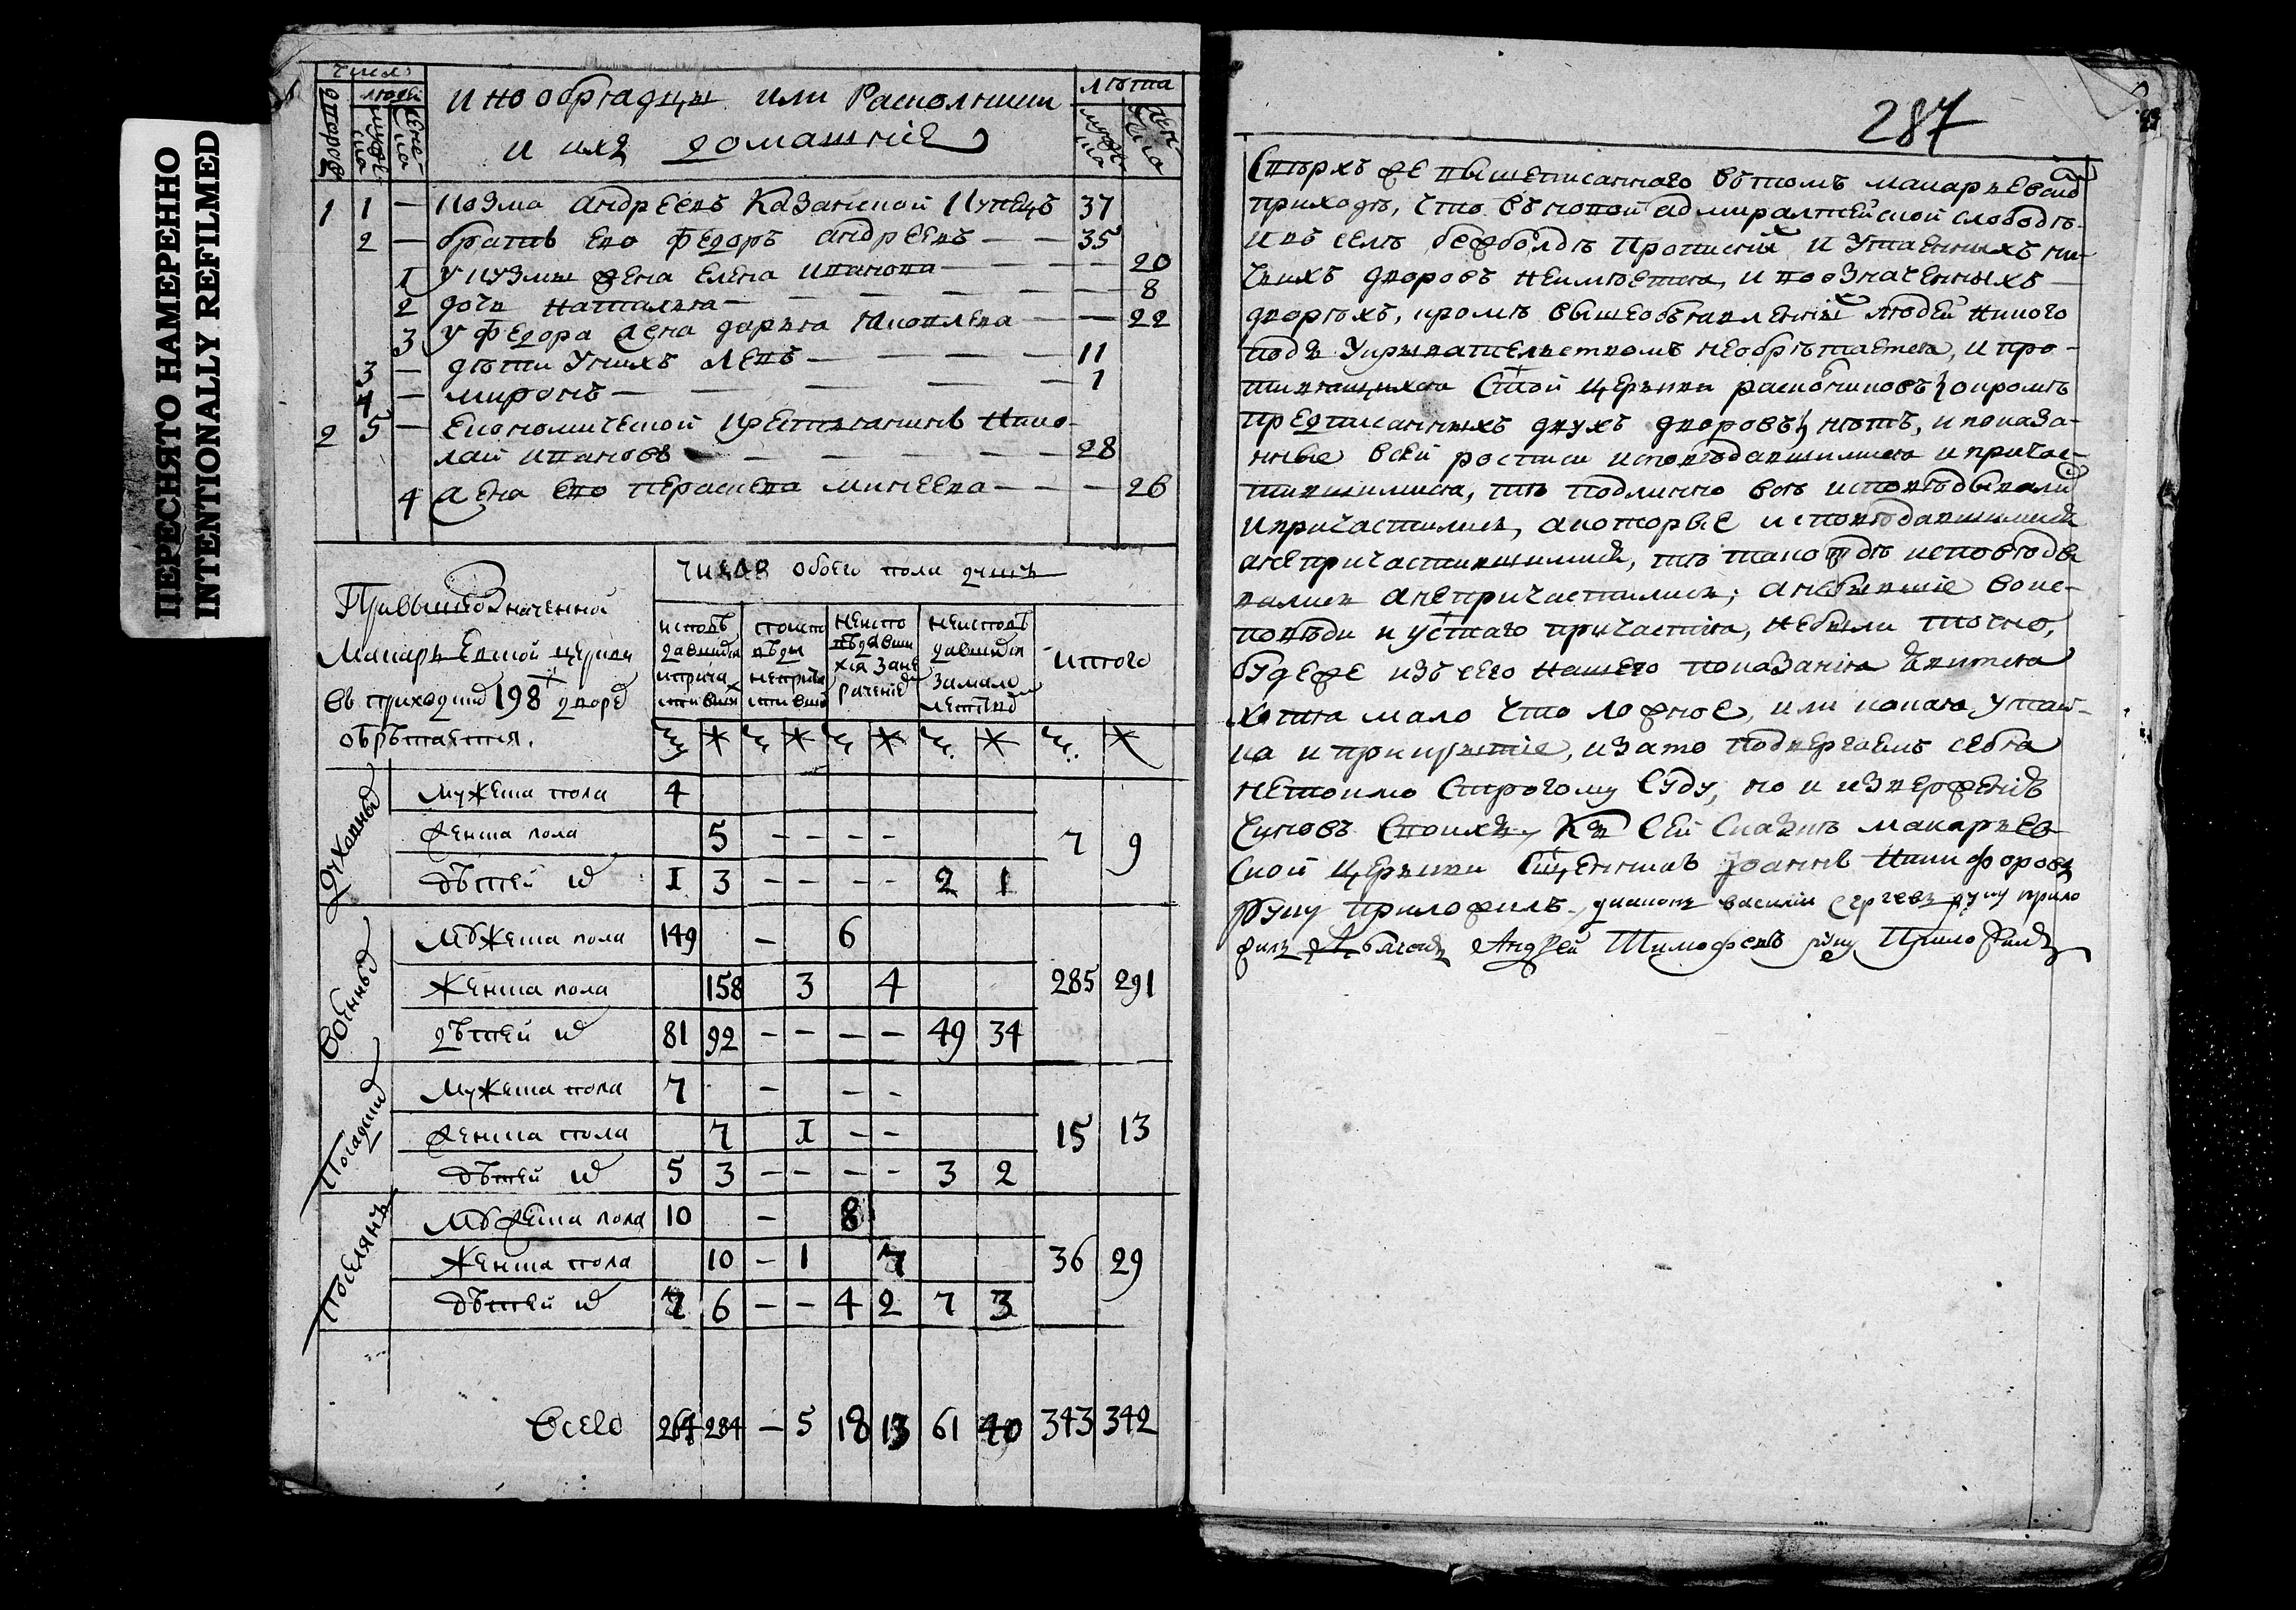 ПЕРЕСНЯТО НАМЕРЕННО
INTENTIONALLY REFILMED
число
дворовъ
людей
мужеска
женска
инообрядцы или Раскольники
и ихъ домашніе
лѣта
мужска
женска
1 1 — Козма андреевъ Казанской Купецъ 37
2 — братъ его федоръ андреевъ — — 35
1 у кузмы жена елена иванова — — 20
2 дочь наталья — — 8
3 у федора жена дарья яковлева — — 22
3 — дѣти у нихъ левъ — — 11
4 — миронъ — — 1
2 5 — економической крестьянинъ нико-
лай ивановъ — — 28
4 жена его параскева минеева — — 26
При вышеозначенной
Макарьевской церкви
въ приходѣ 198 дворѣ
обрѣтается.
число обоего пола душъ
исповѣдавшихся и причастившихся
неисповѣдавшихся за нерачениемъ
неисповѣдавшихся за малолетствомъ
итого
м ж м ж м ж м ж м ж
Духовныхъ
Мужеска пола 4
женска пола 5 — — — — 7 9
дѣтей ихъ 1 3 — — — — 2 1
Военныхъ
Мужеска пола 149 — 6
Женска пола 158 3 4 285 291
дѣтей ихъ 81 92 — — — — 49 34
Посадскихъ
Мужеска пола 7 — — —
женска пола 7 — 1 — — 15 13
дѣтей ихъ 5 3 — — — — 3 2
Поселянъ
Мужеска пола 10 — 8
Женска пола 10 — 1 7 36 29
дѣтей ихъ 7 6 — — 4 2 7 3
Всего 264 284 — 5 18 13 61 40 343 342
287
Сверхъ же вышеписаннаго въ томъ макарьевскомъ
приходѣ, что въ новой адмиралтейской слободѣ
и въ селѣ бежболдѣ прописныхъ и утаенныхъ ни-
чьихъ дворовъ неимѣется, и по означеннымъ
дворѣхъ, кромѣ вышеобъявленныхъ людей никого
подъ укрывательствомъ необрѣтается, и про-
тивящихся Стой церкви раскольниковъ (окромѣ
предписанныхъ двухъ дворовъ) нѣтъ, и показа-
нные в сей росписи исповѣдавшимися и причас-
тившимися, тѣ подлинно всѣ исповѣдывали
и причастились, а которые исповѣдавшимися
а непричастившимися, тѣ такождѣ исповѣды-
вались а непричастились; а небывшие во ис-
повѣди и у стаго причастия, небыли точно,
буде же изъ сего нашего показания явится
хотя мало что ложное, или какая утай-
ка и прикрытие, и за то подвергаемъ себя
нетокмо строгому суду, но и извержению
чиновъ своихъ, Къ сей сказкѣ макарьев-
ской церкви Сщенникъ Иоаннъ Никифоровъ
руку приложилъ. диаконъ василий Сергеевъ руку прило
жилъ дьячокъ Андрей Тимофеевъ руку Приложилъ